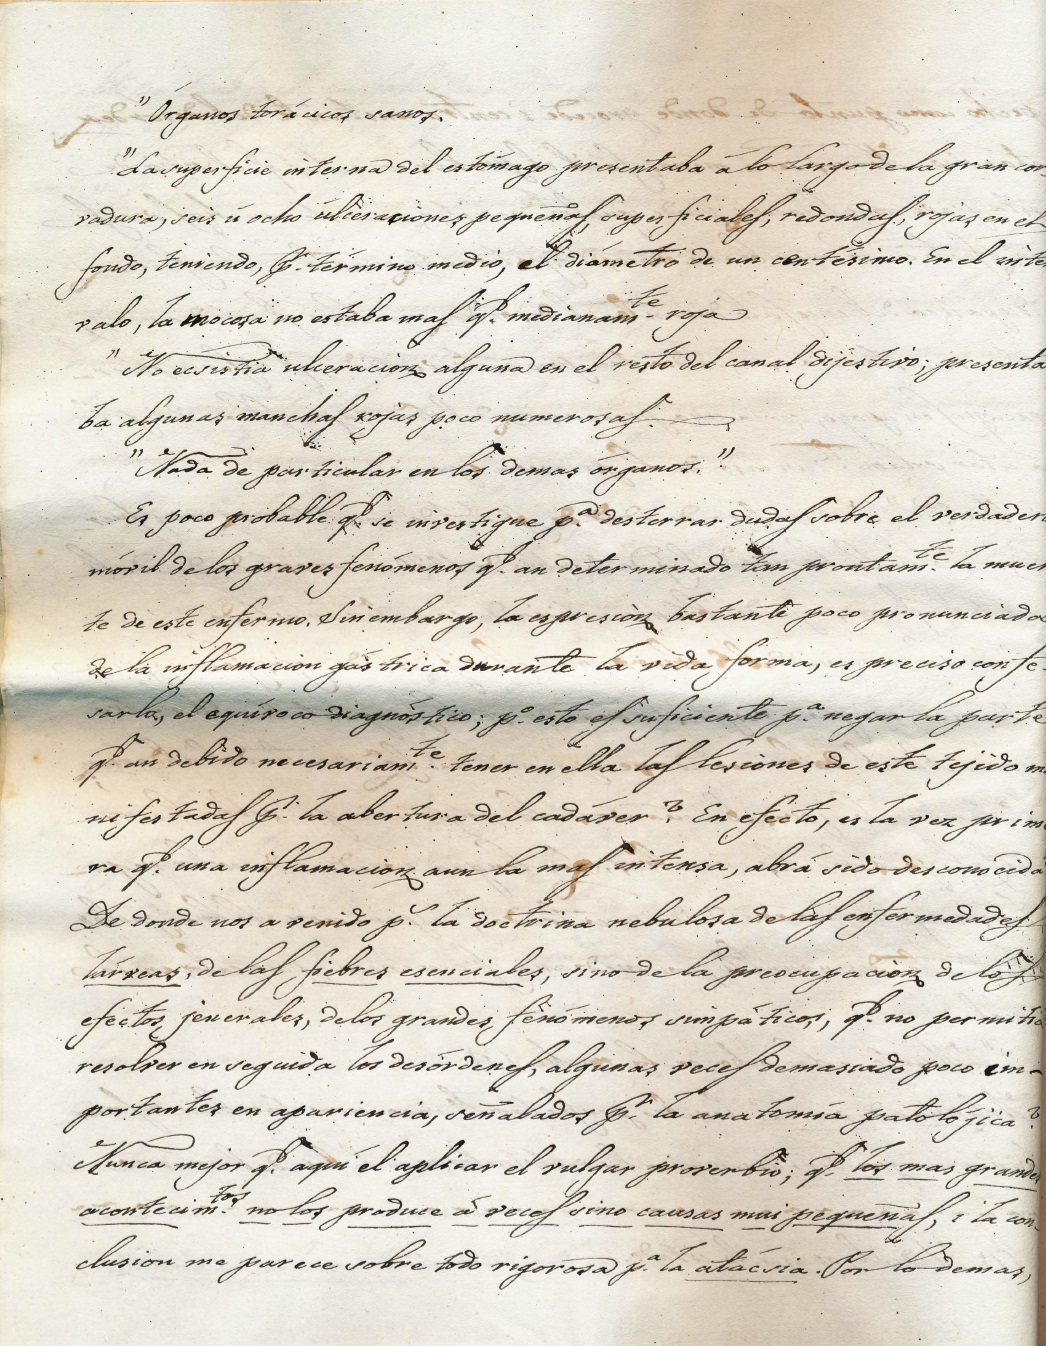 "Órganos torácicos sanos.
"La superficie interna del estómago presentaba á lo largo de la gran cor-
vadura, seis ú ocho ulceraciones pequeñas, superficiales, redondas, rojas en el
fondo, teniendo, pr. término medio, el diámetro de un centésimo. En el inter
valo, la mocosa no estaba mas qe. medianamte. roja
"No ecsistia ulceracion alguna en el resto del canal dijestivo; presenta
ba algunas manchas rojas poco numerosas.
"Nada de particular en los demas órganos."
Es poco probable qe. se investigue pa. desterrar dudas sobre el verdadero
móvil de los graves fenómenos qe. an determinado tan prontamte. la muer
te de este enfermo. Sin embargo, la espresion bastante poco pronunciada
de la inflamacion gástrica durante la vida forma, es preciso confe-
sarlo, el equívoco diagnóstico; po. esto es suficiente pa. negar la parte
qe. an debido necesariamte. tener en ella las lesiones de este tejido ma
nifestadas pr. la abertura del cadáver? En efecto, es la vez prime
ra qe. una inflamacion aun la mas intensa, abrá sido desconocida
De donde nos a venido ps. la doctrina nebulosa de las enfermedades
lárveas, de las fiebres esenciales, sino de la preocupacion de los
efectos jenerales, de los grandes fenómenos simpáticos, qe. no permitia
resolver en seguida los desórdenes, algunas veces demasiado poco im-
portantes en apariencia, señalados pr. la anatomía patolójica?
Nunca mejor qe. aquí el aplicar el vulgar proverbio; qe. los mas grandes
acontecimtos. no los produce á veces sino causas mui pequeñas, i la con-
clusion me parece sobre todo rigorosa pa. la atácsia. Por lo demas,